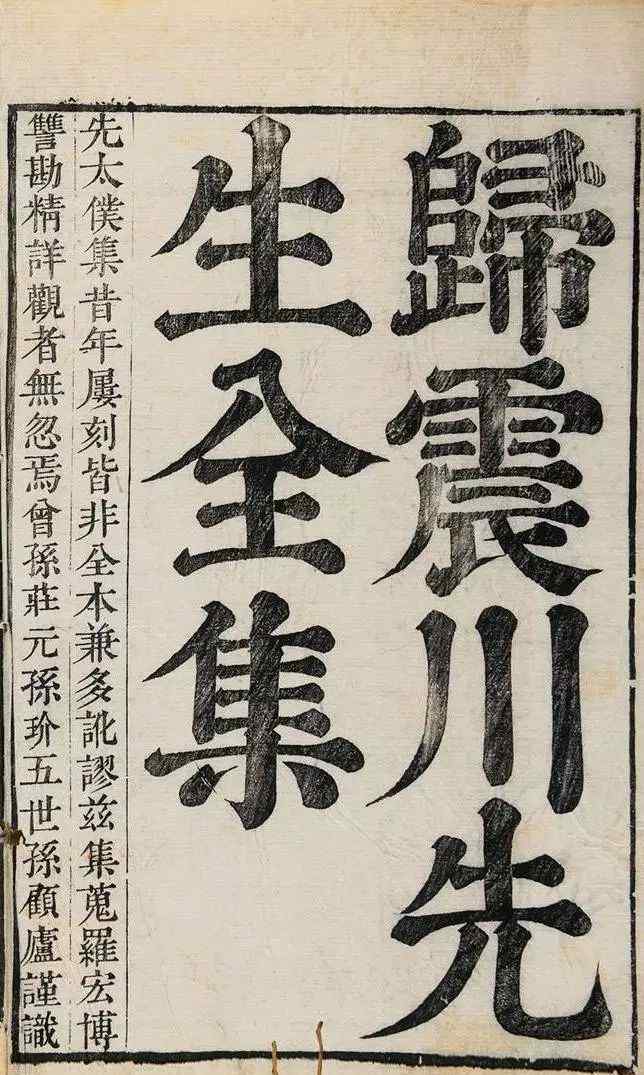 歸震川先
生全集
先太僕集昔年屢刻皆非全本兼多訛謬茲集蒐羅宏博
讐勘精詳觀者無忽焉曾孫莊元孫玠五世孫顧廬謹識